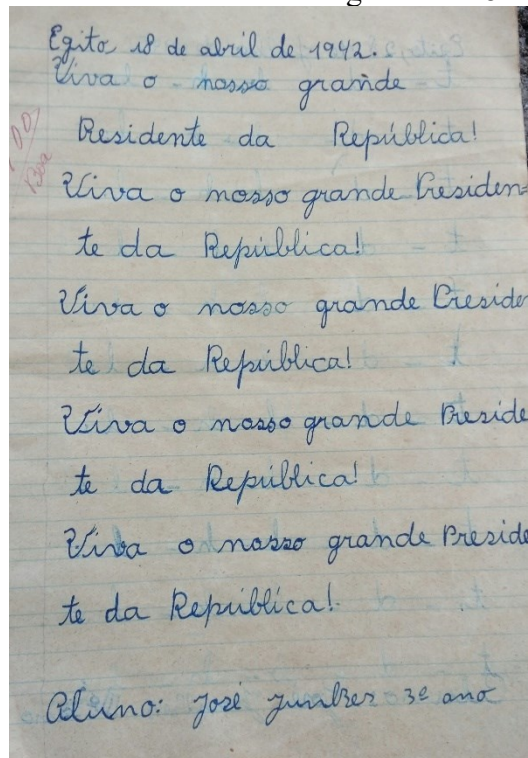 Egito, 18 de abril de 1942.
Viva o nosso grande
Residente da República!
Viva o nosso grande Presiden=
te da República!
Viva o nosso grande Preside
te da República!
Viva o nosso grande Preside
te da República!
Viva o nosso grande Preside
te da República!
Aluno: José 3º ano
100
Boa